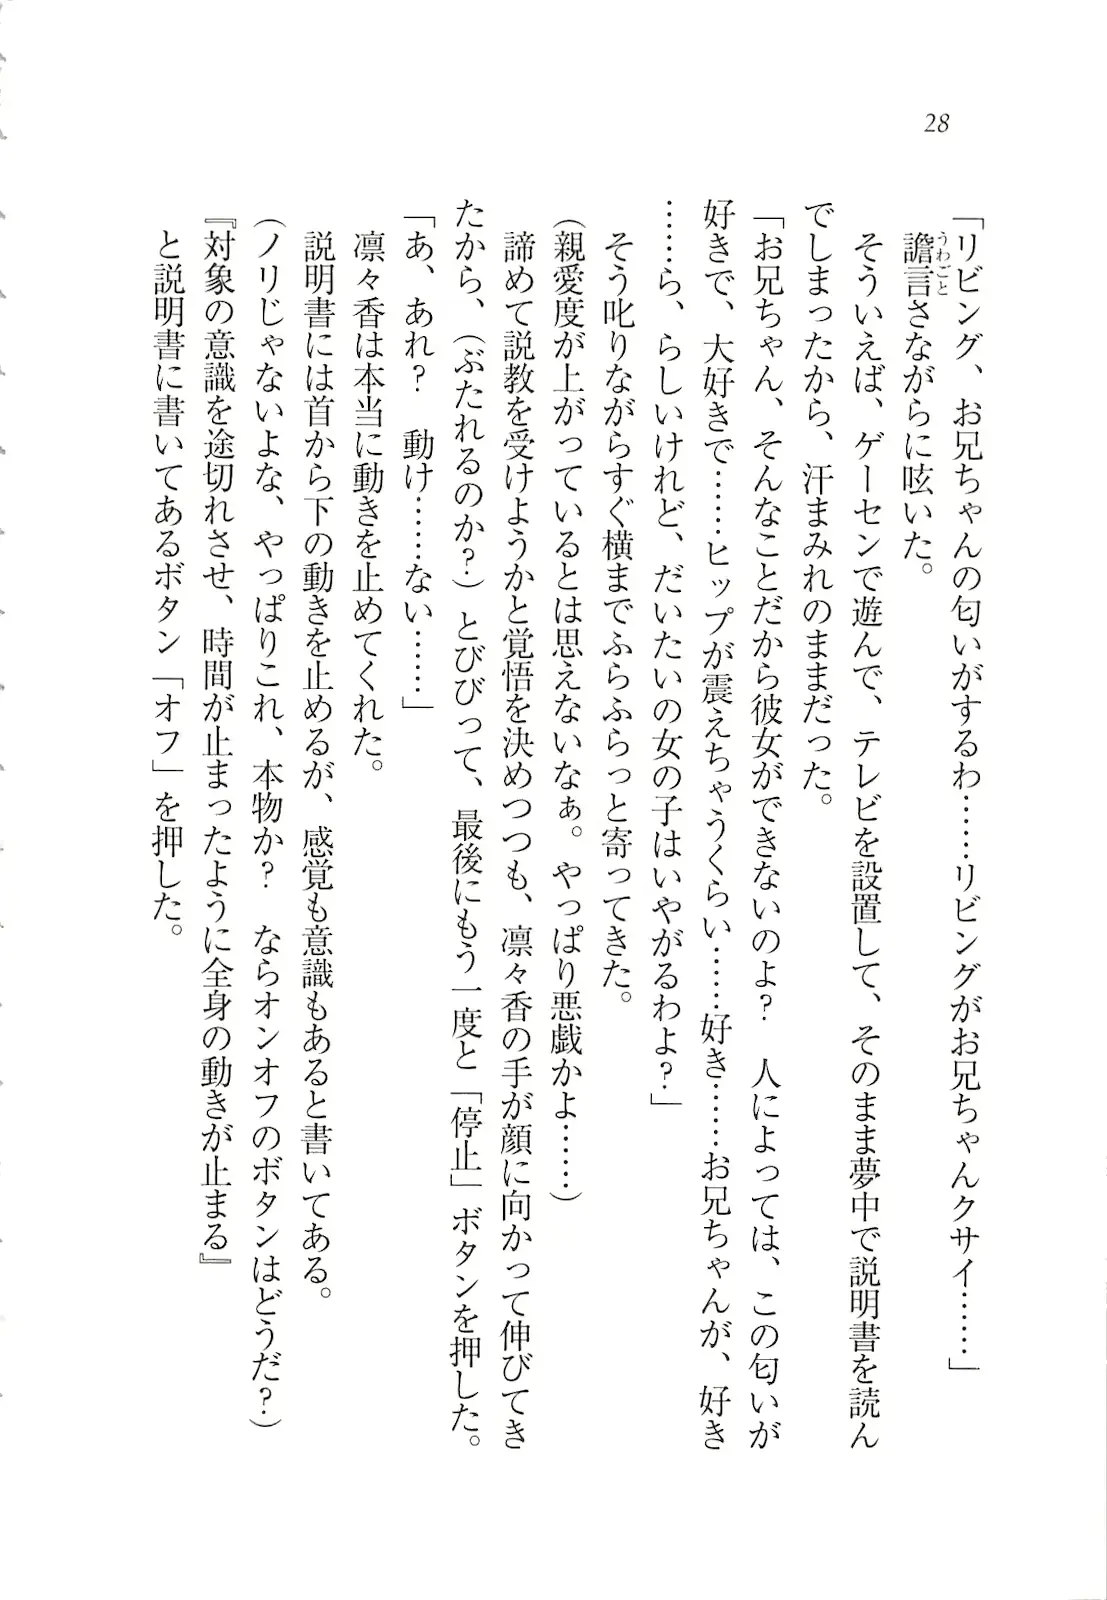 28
「リビング、お兄ちゃんの匂いがするわ……リビングがお兄ちゃんクサイ……」
譫言さながらに呟いた。
うわごと
そういえば、ゲーセンで遊んで、テレビを設置して、そのまま夢中で説明書を読ん
でしまったから、汗まみれのままだった。
「お兄ちゃん、そんなことだから彼女ができないのよ？　人によっては、この匂いが
好きで、大好きで……ヒップが震えちゃうくらい……好き……お兄ちゃんが、好き
……ら、らしいけれど、だいたいの女の子はいやがるわよ？」
そう叱りながらすぐ横までふらふらっと寄ってきた。
（親愛度が上がっているとは思えないなぁ。やっぱり悪戯かよ……）
諦めて説教を受けようかと覚悟を決めつつも、凛々香の手が顔に向かって伸びてき
たから、（ぶたれるのか？）とびびって、最後にもう一度と「停止」ボタンを押した。
「あ、あれ？　動け……ない……」
凛々香は本当に動きを止めてくれた。
説明書には首から下の動きを止めるが、感覚も意識もあると書いてある。
（ノリじゃないよな、やっぱりこれ、本物か？　ならオンオフのボタンはどうだ？）
『対象の意識を途切れさせ、時間が止まったように全身の動きが止まる』
と説明書に書いてあるボタン「オフ」を押した。